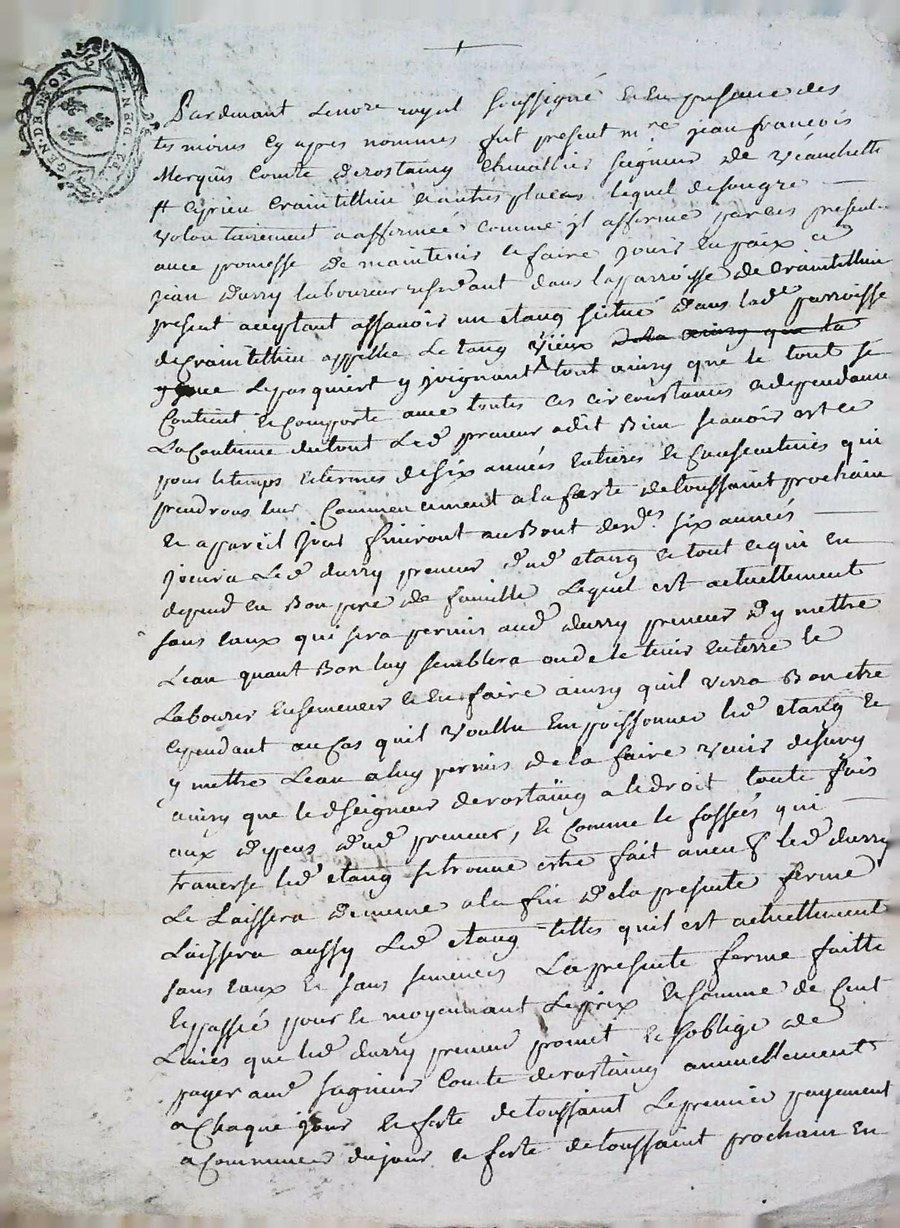 GEN. DE LYON
Pardevant Lenore royal soussigné et en presence des
tesmoins cy apres nommes fut present mre jean françois
Merquis Comte derostaing chevallier seigneur de veauchette
st Cyrien Craintillieu et autres places lequel de son gre
volontairement a affermée comme jl afferme par ces presentes
avec promesse de maintenir et faire jouir en paix a
jean durry laboureur residant dans la parroisse de Craintillieu
present acceptant assavoir un etang situé dans lade parroisse
de Craintillieu appellée Letang vieux dela ainsy que la
Lepasquiert y joignant tout ainsy que le tout se
Contient et Comporte avec toutes ces circonstances et dependance
La Contenue du tout Led preneur a dit Bien scavoir et ce
pour le temps et termes de six années entieres et Consecutives qui
prendrons leur Commencement a la feste de toussaint prochain
et a pareil jour finiront au Bout desdes six années
jouira Led durry preneur dud etang et tout ce qui en
depend en Bon pere de famille Lequel est actuellement
sans eaux qui sera permis aud durry preneur dy mettre
Leau quant Bon luy semblera ou de le tenir en terre le
Labourer Ensemencer et en faire ainsy quil verra Bon etre
Cependant au Cas quil voullu Empoissonner led etang et
y mettre Leau a luy permis de la faire venir de
ainsy que led seigneur derostaing a le droit toute fois
aux depens dud preneur, et Comme le fossées qui
traverse led etang se trouve estre fait a neuf led durry
Le Laissera de meme a la fin de la presente ferme
Laissera aussy Led etang telles quil est actuellement
sans eaux et sans semences La presente ferme faitte
et passée pour et moyennant Le prix et somme de Cent
Livres que led durry preneur promet et soblige de
payer aud seigneur Comte derostaing annuellement
a Chaque jour et feste de toussaint Le premier payement
a Commencer du jour et feste de toussaint prochain En